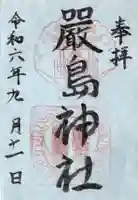 奉拝
嚴島神社
令和六年九月十一日